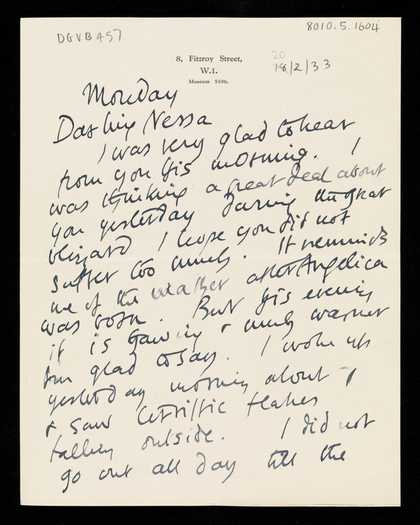 DGVB A57
8010.5.1604
8, Fitzroy Street,
W.1.
Museum
20
18/2/33
Monday
Darling Nessa
I was very glad to hear
from you this morning. I
was thinking a great deal about
you yesterday during the great
blizzard I hope you did not
suffer too much. It reminds
me of the weather after Angelica
was born. But this evening
it is thawing & much warmer
I'm glad to say. I woke up
yesterday morning about 7
& saw terrific flakes
falling outside. I did not
go out all day till the